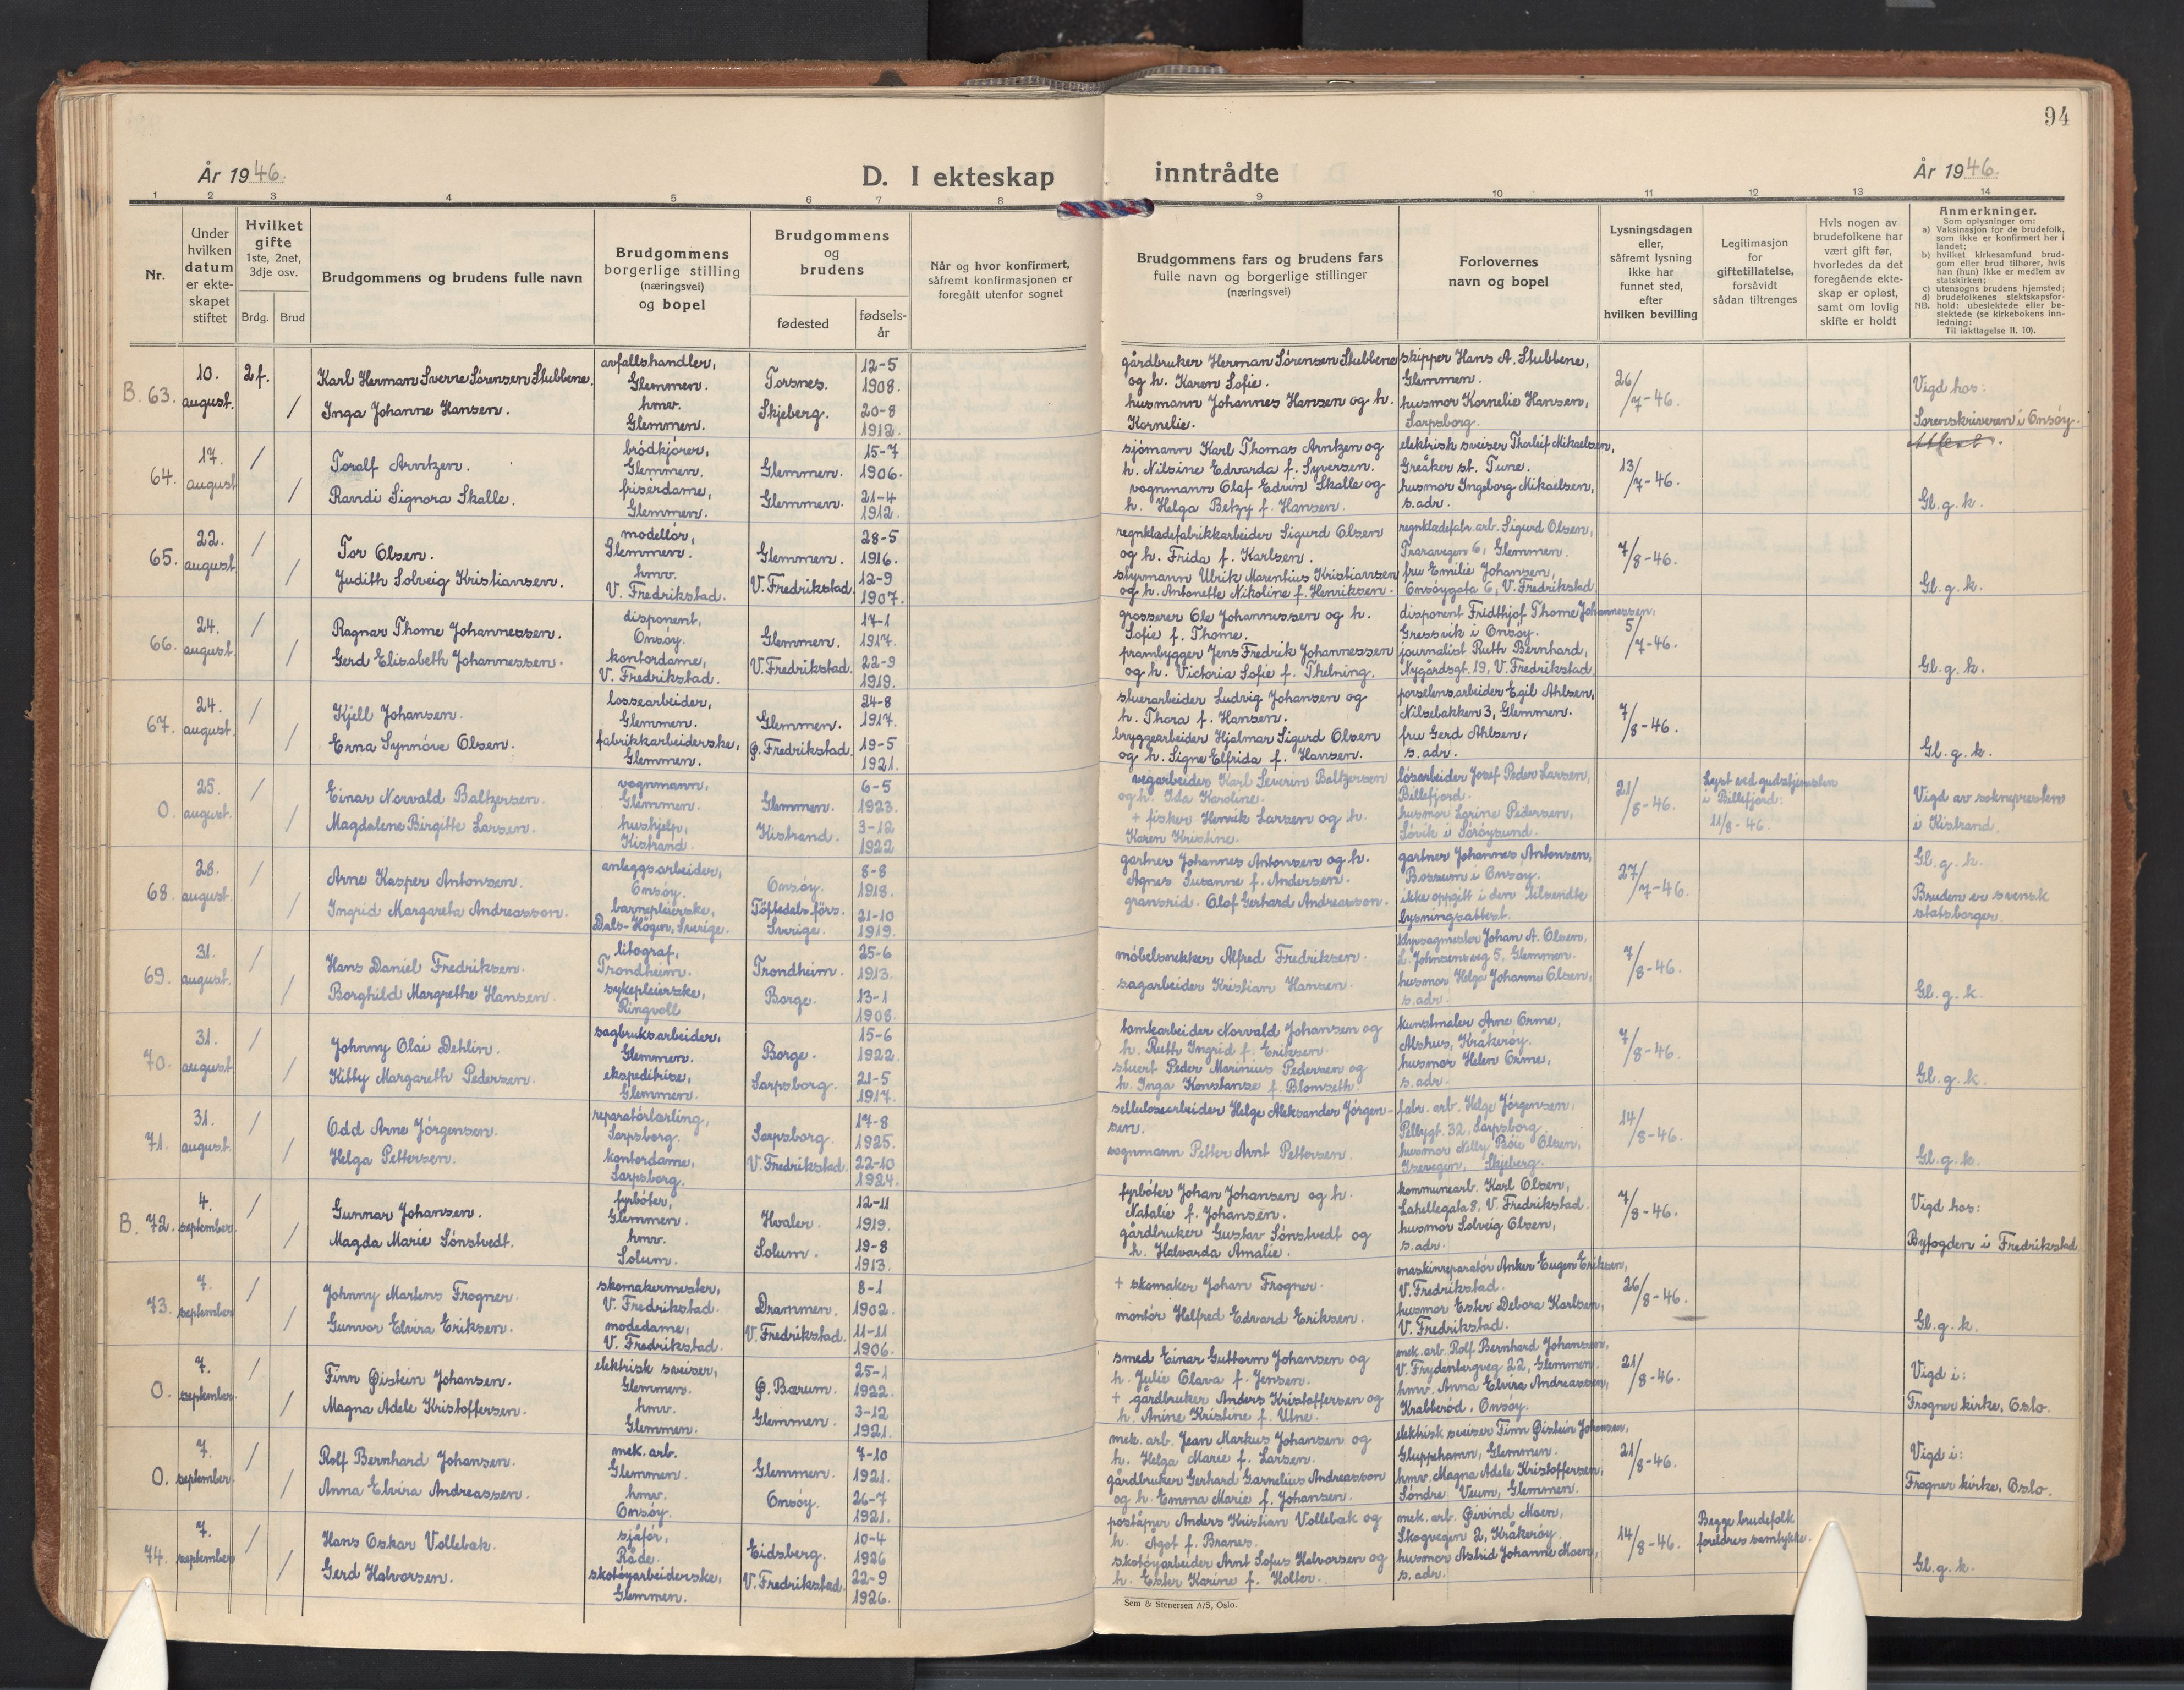 94
År 1946.
D. I ekteskap inntrådte
År 1946.
1 2 3 4 5 6 7 8 9 10 11 12 13 14
Nr.
Under hvilken datum er ekte-skapet stiftet
Hvilket gifte
1ste, 2net, 3dje osv.
Brdg. Brud
Brudgommens og brudens fulle navn
Brudgommens borgerlige stilling (næringsvei) og bopel
Brudgommens og brudens
fødested
fødsels-år
Når og hvor konfirmert, såfremt konfirmasjonen er foregått utenfor sognet
Brudgommens fars og brudens fars fulle navn og borgerlige stillinger (næringsvei)
Forlovernes navn og bopel
Lysningsdagen eller, såfremt lysning ikke har funnet sted, efter hvilken bevilling
Legitimasjon for giftetillatelse, forsåvidt sådan tiltrenges
Hvis nogen av brudefolkene har vært gift før, hvorledes da det foregående ekte-skap er opløst, samt om lovlig skifte er holdt
Anmerkninger.
Som oplysninger om:
a) Vaksinasjon for de brudefolk, som ikke er konfirmert her i landet;
b) hvilket kirkesamfund brud-gom eller brud tilhører, hvis han (hun) ikke er medlem av statskirken;
c) utensogns brudens hjemsted;
d) brudefolkenes slektskapsfor-hold: ubeslektede eller be-slektede (se kirkebokens inn-ledning:
NB. Til iakttagelse II. 10).
B. 63. 10. august. 2 f. /
Karl Herman Sverre Sörensen Stubbene.
Inga Johanne Hansen.
avfallshandler, Glemmen.
hmv. Glemmen.
Torsnes. 12-5 1908.
Skjeberg. 20-8 1912.
gårdbruker Herman Sörensen Stubbene og h. Karen Sofie.
husmann Johannes Hansen og h. Kornelie.
skipper Hans A. Stubbene, Glemmen.
husmor Kornelie Hansen, Sarpsborg.
26/7-46.
Vigd hos:
Sorenskriveren i Onsöy.
64. 17. august / /
Toralf Arntzen.
Ravdi Signora Skalle.
brödkjörer, Glemmen.
frisérdame, Glemmen.
Glemmen. 15-7 1906.
Glemmen. 21-4 1912.
sjömann Karl Thomas Arntzen og h. Nilsine Edvarda f. Syversen.
vognmann Olaf Edvin Skalle og h. Helga Betzy f. Hansen.
elektrisk sveiser Thorleif Mikaelsen, Greåker st. Tune.
husmor Ingeborg Mikaelsen, s. adr.
13/7-46.
Gl. g. k.
65. 22. august / /
Tor Olsen.
Judith Solveig Kristiansen.
modellör, Glemmen.
hmv. V. Fredrikstad.
Glemmen. 28-5 1916.
V. Fredrikstad 12-9 1907.
regnklædefabrikkarbeider Sigurd Olsen og h. Frida f. Karlsen.
styrmann Ulrik Marentius Kristiansen og h. Antonette Nikoline f. Henriksen.
regnklædefabr. arb. Sigurd Olsen, Traravegen 6, Glemmen.
fru Emilie Johansen, Onsöygata 6, V. Fredrikstad
7/8-46.
Gl. g. k.
66. 24. august. / /
Ragnar Thome Johannessen.
Gerd Elisabeth Johannessen.
disponent, Onsöy.
kontordame, V. Fredrikstad.
Glemmen. 17-1 1917.
V. Fredrikstad. 22-9 1919.
grosserer Ole Johannessen og h. Sofie f. Thome.
prambygger Jens Fredrik Johannessen og h. Victoria Sofie f. Thelning.
disponent Fridthjof Thome Johannessen, Gressvik i Onsöy.
journalist Ruth Bernhard, Nygårdsgt. 19, V. Fredrikstad
5/7-46.
Gl. g. k.
67. 24. august. / /
Kjell Johansen.
Erna Synnöve Olsen.
lossearbeider, Glemmen.
fabrikkarbeiderske, Glemmen.
Glemmen. 24-8 1917.
Ø. Fredrikstad. 19-5 1921.
stuerarbeider Ludvig Johansen og h. Thora f. Hansen.
bryggearbeider Hjalmar Sigurd Olsen og h. Signe Elfrida f. Hansen.
porselensarbeider Egil Ahlsen, Nilsebakken 3, Glemmen.
fru Gerd Ahlsen, s. adr.
7/8-46.
Gl. g. k.
0. 25. august. / /
Einar Norvald Baltzersen.
Magdalene Birgitte Larsen.
vognmann, Glemmen.
hushjelp, Kistrand.
Glemmen. 6-5 1923.
Kistrand. 3-12 1922
vegarbeider Karl Severin Baltzersen og h. Ida Karoline.
+ fisker Henrik Larsen og h. Karen Kristine.
lösarbeider Josef Peder Larsen, Billefjord.
husmor Larine Pedersen, Sövik i Söröysund.
21/8-46.
Lyst ved gudstjenesten i Billefjord: 11/8-46.
Vigd av soknepresten i Kistrand.
68. 28. august. / /
Arne Kasper Antonsen.
Ingrid Margareta Andreasson.
anleggsarbeider, Onsöy.
barnepleierske, Dals-Högen, Sverige.
Onsöy. 8-8 1918.
Töftedals förs. Sverige. 21-10 1919.
gartner Johannes Antonsen og h. Agnes Susanne f. Andersen.
gransrid. Olof Gerhard Andreasson.
gartner Johannes Antonsen, Bossum i Onsöy.
ikke oppgitt i den tilsendte lysningsattest.
27/7-46.
Gl. g. k.
Bruden er svensk statsborger.
69. 31. august. / /
Hans Daniel Fredriksen.
Borghild Margrethe Hansen.
litograf, Trondheim.
sykepleierske, Ringvoll
Trondheim. 25-6 1913.
Borge. 13-1 1908.
möbelsnekker Alfred Fredriksen.
sagarbeider Kristian Hansen.
Johan A. Olsen, L. Johnsensveg 5, Glemmen.
husmor Helga Johanne Olsen, s. adr.
7/8-46.
Gl. g. k.
70. 31. august / /
Johnny Olai Dehlin.
Kitty Margareth Pedersen.
sagbruksarbeider, Glemmen.
ekspeditrise, Glemmen.
Borge. 15-6 1922.
Sarpsborg. 21-5 1917.
tomtearbeider Norvald Johansen og h. Ruth Ingrid f. Eriksen.
stuert Peder Marinius Pedersen og h. Inga Konstanse f. Blomseth.
kunstmaler Arne Orme, Alshus, Kråkeröy.
husmor Helen Orme, s. adr.
7/8-46.
Gl. g. k.
71. 31. august. / /
Odd Arne Jörgensen.
Helga Pettersen.
reparatörlærling, Sarpsborg.
kontordame, Sarpsborg.
Sarpsborg. 17-8 1925.
V. Fredrikstad. 22-10 1924.
sellulosearbeider Helge Aleksander Jörgen-sen.
vognmann Petter Arnt Pettersen.
fabr. arb. Helge Jörgensen, Pellygt. 32, Sarpsborg.
husmor Nelly Böie Olsen, Isevegen, Skjeberg.
14/8-46.
Gl. g. k.
B. 72. 4. september. / /
Gunnar Johansen.
Magda Marie Sönstvedt.
fyrböter, Glemmen.
hmv. Solum.
Hvaler. 12-11 1919.
Solum. 19-8 1913.
fyrböter Johan Johansen og h. Natalie f. Johansen.
gårdbruker Gustav Sönstvedt og h. Halvarda Amalie.
kommunearb. Karl Olsen, Lahellegata 8, V. Fredrikstad.
husmor Solveig Olsen, s. adr.
7/8-46.
Vigd hos:
Byfogden i Fredrikstad
73. 7. september / /
Johnny Martens Frogner.
Gunvor Elvira Eriksen.
skomakermester, V. Fredrikstad.
modedame, V. Fredrikstad.
Drammen. 8-1 1902.
V. Fredrikstad. 11-11 1906.
+ skomaker Johan Frogner.
montör Helfred Edvard Eriksen.
maskinreparatör Anker Eugen Eriksen, V. Fredrikstad.
husmor Ester Debora Karlsen, V. Fredrikstad.
26/8-46.
Gl. g. k.
0. 7. september. / /
Finn Øistein Johansen.
Magna Adele Kristoffersen.
elektrisk sveiser, Glemmen.
hmv. Glemmen.
Ø. Bærum. 25-1 1922.
Glemmen. 3-12 1921.
smed Einar Guttorm Johansen og h. Julie Olava f. Jensen.
+ gårdbruker Anders Kristoffersen og h. Anine Kristine f. Utne.
mek. arb. Rolf Bernhard Johansen, V. Frydenbergveg 22, Glemmen.
hmv. Anna Elvira Andreassen, Krabberöd, Onsöy.
21/8-46.
Vigd i:
Frogner kirke, Oslo.
0. 7. september. / /
Rolf Bernhard Johansen.
Anna Elvira Andreassen.
mek. arb. Glemmen.
hmv. Onsöy.
Glemmen. 7-10 1921.
Onsöy. 26-7 1921.
mek. arb. Jean Markus Johansen og h. Helga Marie f. Larsen.
gårdbruker Gerhard Garnelius Andreasson og h. Emma Marie f. Johansen.
elektrisk sveiser Finn Øistein Johansen, Gluppehamn, Glemmen.
hmv. Magna Adele Kristoffersen, Söndre Veum, Glemmen.
21/8-46.
Vigd i:
Frogner kirke, Oslo.
74. 7. september / /
Hans Oskar Vollebæk.
Gerd Halvorsen.
sjåför, Råde.
skotöyarbeiderske, Glemmen.
Eidsberg. 10-4 1926
V. Fredrikstad. 22-9 1926.
poståpner Anders Kristian Vollebæk og h. Ågot f. Branes.
skotöyarbeider Arnt Sofus Halvorsen og h. Ester Karine f. Holter.
mek. arb. Øivind Moen, Skogvegen 2, Kråkeröy.
husmor Astrid Johanne Moen, s. adr.
14/8-46.
Begge brudefolk foreldres samtykke.
Gl. g. k.
Sem & Stenersen A/S, Oslo.